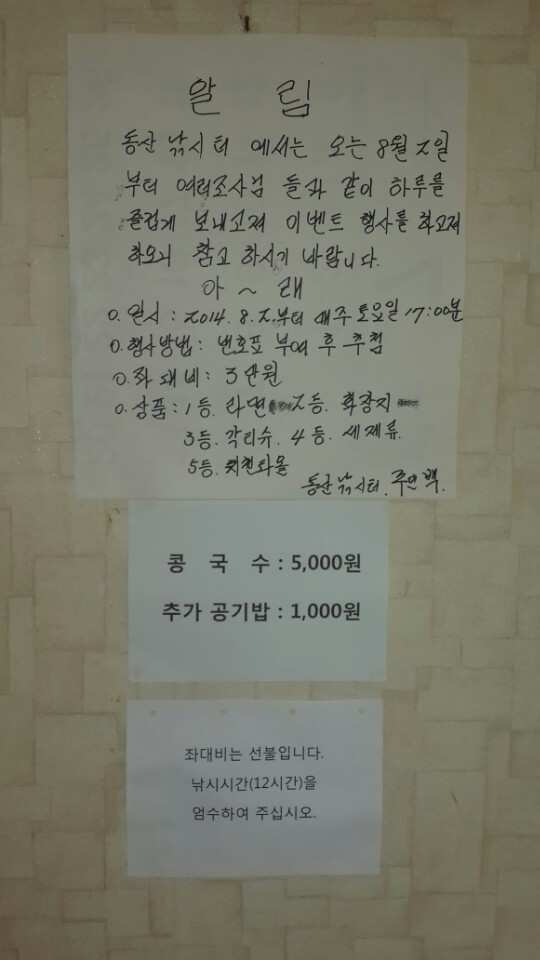 알 림
동산 낚시터 에서는 오는 8월 2일
부터 여러조사님 들과 같이 하루를
즐겁게 보내고져 이벤트 행사를 하고져
하오니 참고 하시기 바랍니다.
아 ~ 래
0. 일시 : 2014. 8. 2. 부터 매주 토요일 17:00분
0. 행사방법 : 번호표 부여 후 추첨
0. 좌대비 : 3만원
0. 상품 : 1등. 라면 2등. 화장지
3등. 각티슈. 4등. 세제류.
5등. 타올
동산 낚시터. 주인 백.
콩 국 수 : 5,000원
추가 공기밥 : 1,000원
좌대비는 선불입니다.
낚시시간(12시간)을
엄수하여 주십시오.